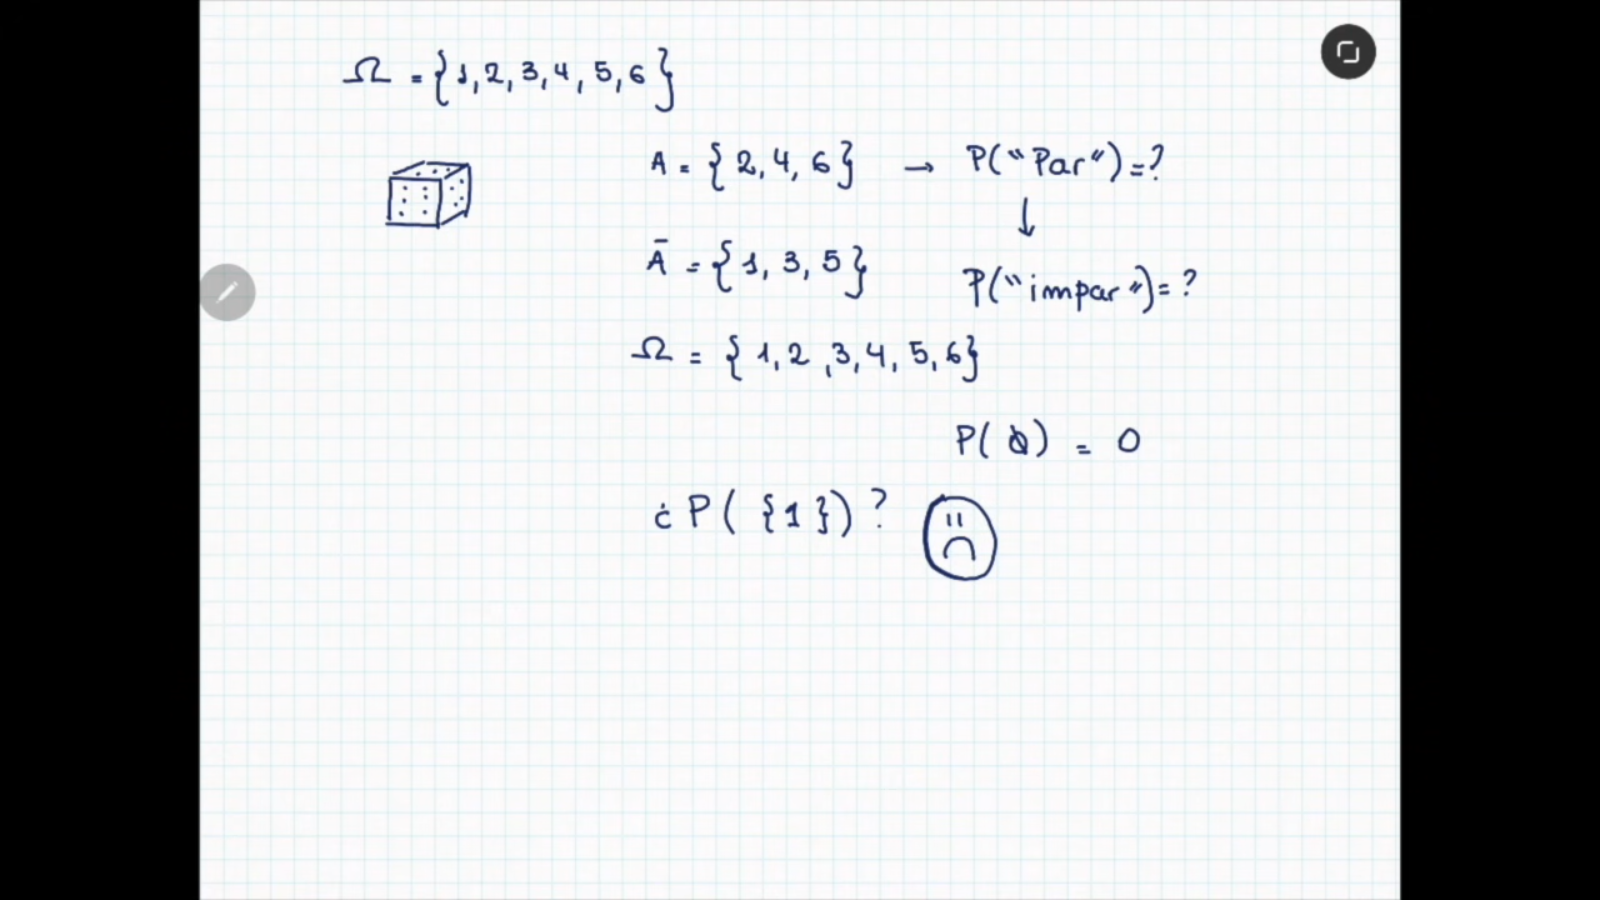 Ω = {1, 2, 3, 4, 5, 6}
A = {2, 4, 6} → P("Par") = ?
↓
Ā = {1, 3, 5} P("impar") = ?
Ω = {1, 2, 3, 4, 5, 6}
P(∅) = 0
¿P({1})?